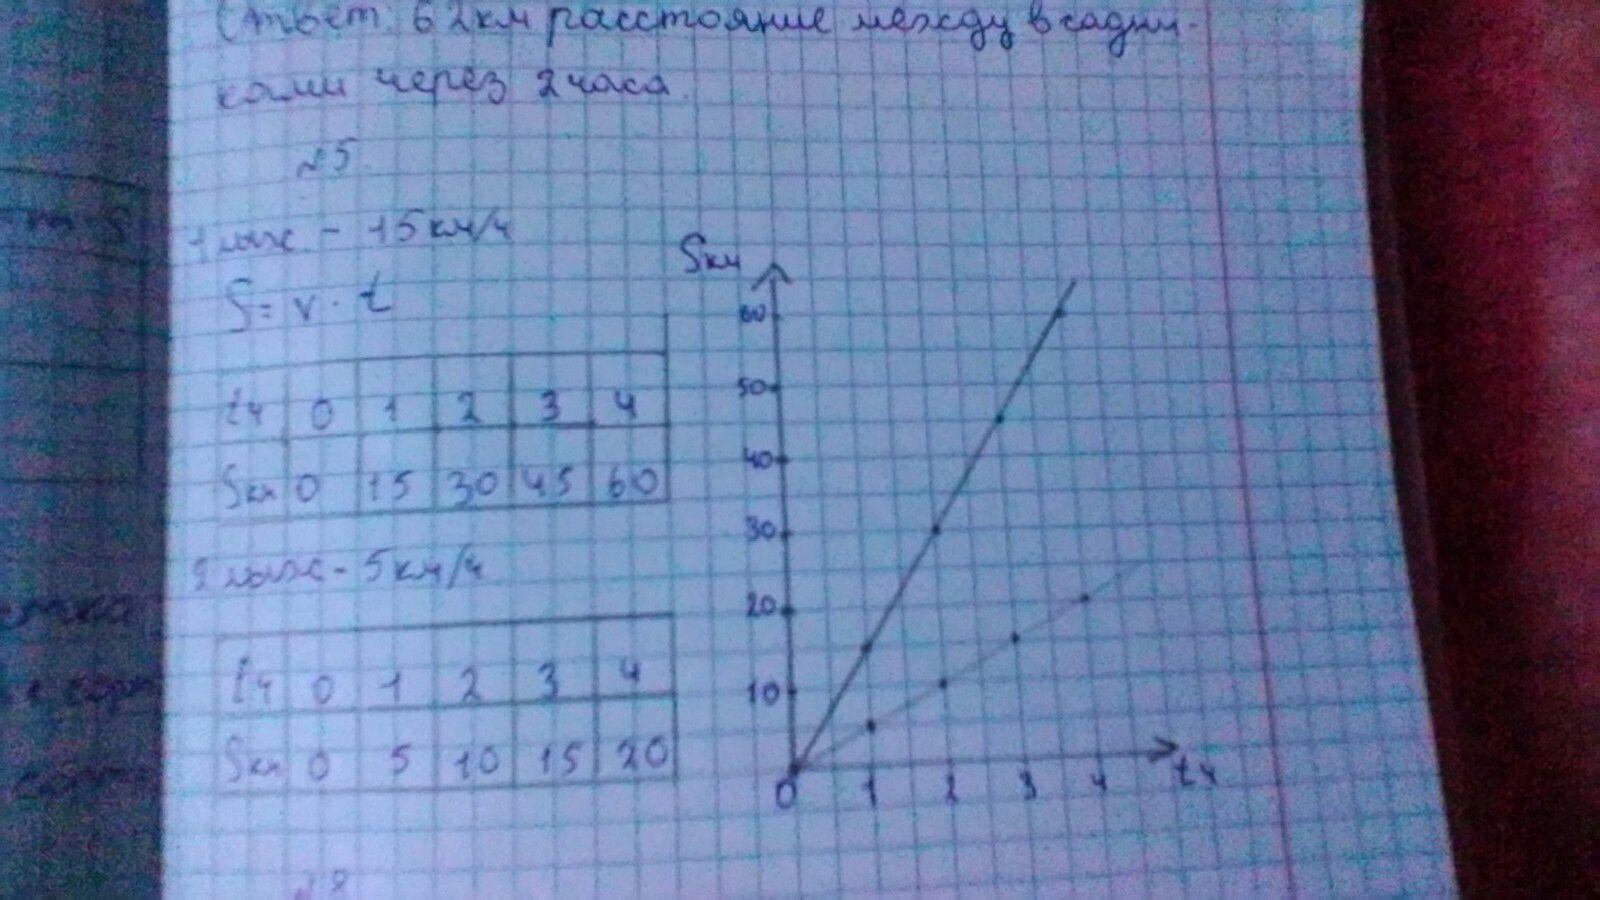 Ответ: 62км расстояние между всадни-
ками через 2 часа.
№5.
1 лыж - 15км/ч
S = v · t
tч 0 1 2 3 4
Sкм 0 15 30 45 60
2 лыж - 5км/ч
tч 0 1 2 3 4
Sкм 0 5 10 15 20
Sкм
60
50
40
30
20
10
0 1 2 3 4 tч